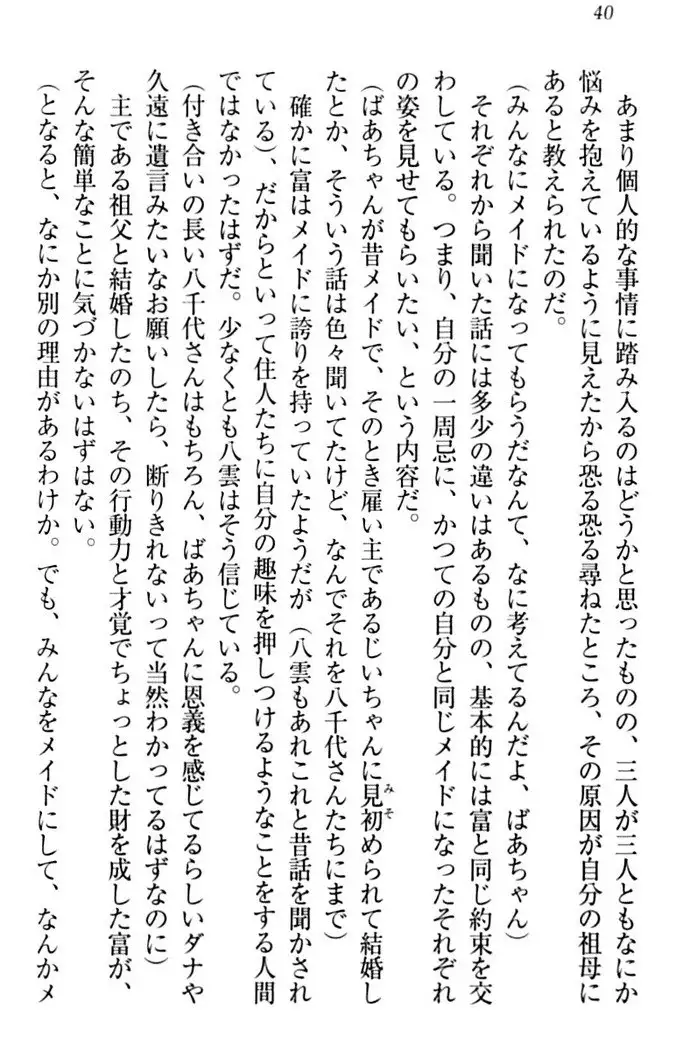 40
あまり個人的な事情に踏み入るのはどうかと思ったものの、三人が三人ともなにか
悩みを抱えているように見えたから恐る恐る尋ねたところ、その原因が自分の祖母に
あると教えられたのだ。
（みんなにメイドになってもらうだなんて、なに考えてるんだよ、ばあちゃん）
それぞれから聞いた話には多少の違いはあるものの、基本的には富と同じ約束を交
わしている。つまり、自分の一周忌に、かつての自分と同じメイドになったそれぞれ
の姿を見せてもらいたい、という内容だ。
（ばあちゃんが昔メイドで、そのとき雇い主であるじいちゃんに見初められて結婚し
みそ
たとか、そういう話は色々聞いてたけど、なんでそれを八千代さんたちにまで）
確かに富はメイドに誇りを持っていたようだが（八雲もあれこれと昔話を聞かされ
ている）、だからといって住人たちに自分の趣味を押しつけるようなことをする人間
ではなかったはずだ。少なくとも八雲はそう信じている。
（付き合いの長い八千代さんはもちろん、ばあちゃんに恩義を感じてるらしいダナや
久遠に遺言みたいなお願いしたら、断りきれないって当然わかってるはずなのに）
主である祖父と結婚したのち、その行動力と才覚でちょっとした財を成した富が、
そんな簡単なことに気づかないはずはない。
（となると、なにか別の理由があるわけか。でも、みんなをメイドにして、なんかメ